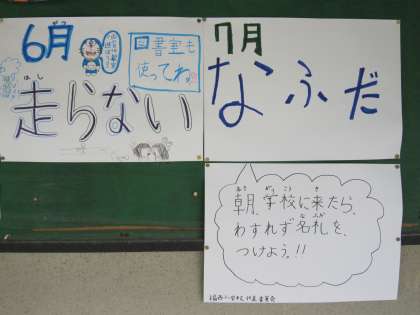 6月
図書室も
使ってね
走らない
7月
なふだ
朝、学校に来たら、
わすれず名札を、
つけよう!!